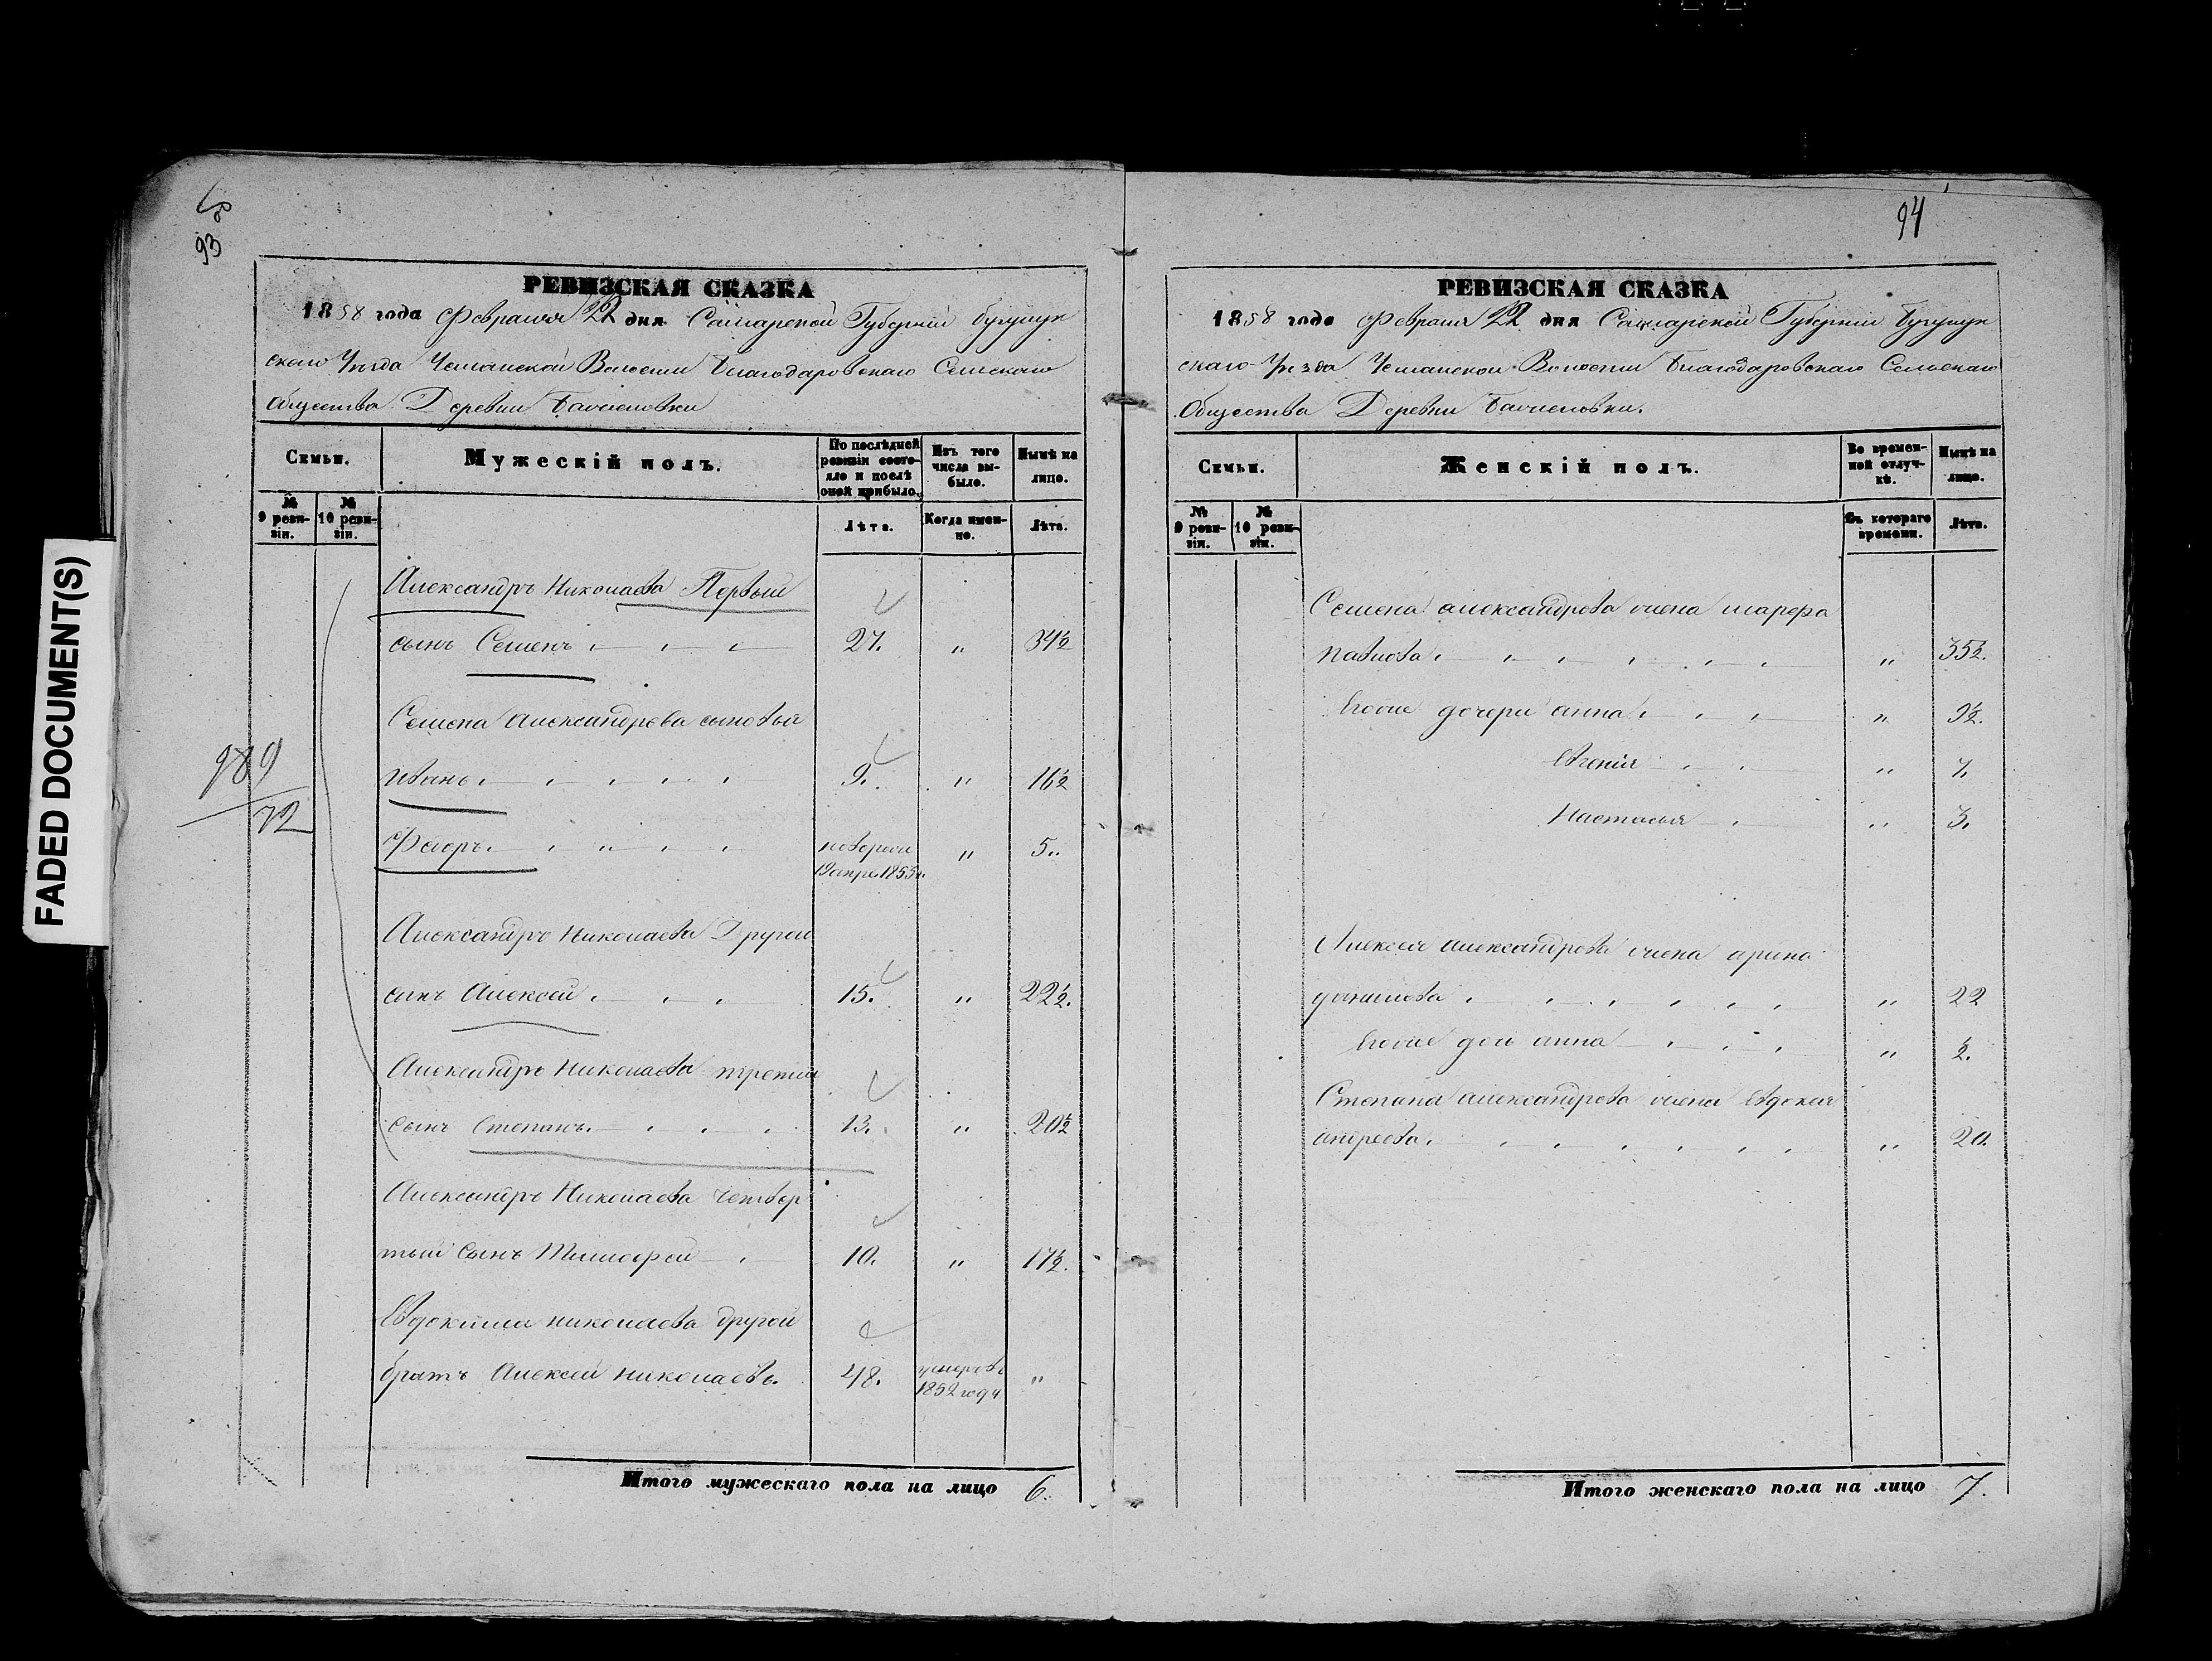 FADED DOCUMENT(S)
93
РЕВИЗСКАЯ СКАЗКА
1858 года Февраля 22 дня Самарской Губерніи Бугурус
скаго Уѣзда Волости Благодаровскаго Сельскаго
Общества Деревни
Семьи.
Мужескій полъ.
По послѣдней ревизіи состояло и послѣ оной прибыло.
Изъ того числа выбыло.
Нынѣ на лицо.
№ 9 ревизіи.
№ 10 ревизіи.
Лѣта.
Когда именно.
Лѣта.
Александръ Николаева Первый
сынъ Семенъ 27. " 34½
Семена Александрова сыновья
Иванъ 9. " 16½
989
72
Федоръ. новорож " 5.
19 апре. 1853
Александръ Николаева Другой
сынъ Алексей 15. " 22½.
Александръ Николаева третій
сынъ Степанъ. 13. " 20½
Александръ Николаева четвер
тый сынъ Тимофей 10. " 17½.
Евдокима николаева другой
братъ Алексей николаевъ. 48. умеръ въ "
1852 году
Итого мужескаго пола на лицо 6.
94
РЕВИЗСКАЯ СКАЗКА
1858 года Февраля 22 дня Самарской Губерніи Бугурус
скаго Уѣзда Волости Благодаровскаго Сельскаго
Общества Деревни
Семьи.
Женскій полъ.
Во временной отлучкѣ.
Нынѣ на лицо.
№ 9 ревизіи.
№ 10 ревизіи.
Съ котораго времени.
Лѣта.
Семена александрова жена марфа
павлова " 35½.
Еговые дочери анна " 9½.
Евгенія " 7.
Настасья " 3.
Алексея александрова жена арина
данилова " 22
Еговые доч анна " ½.
Степана александрова жена Евдокия
андреева " 20.
Итого женскаго пола на лицо 7.